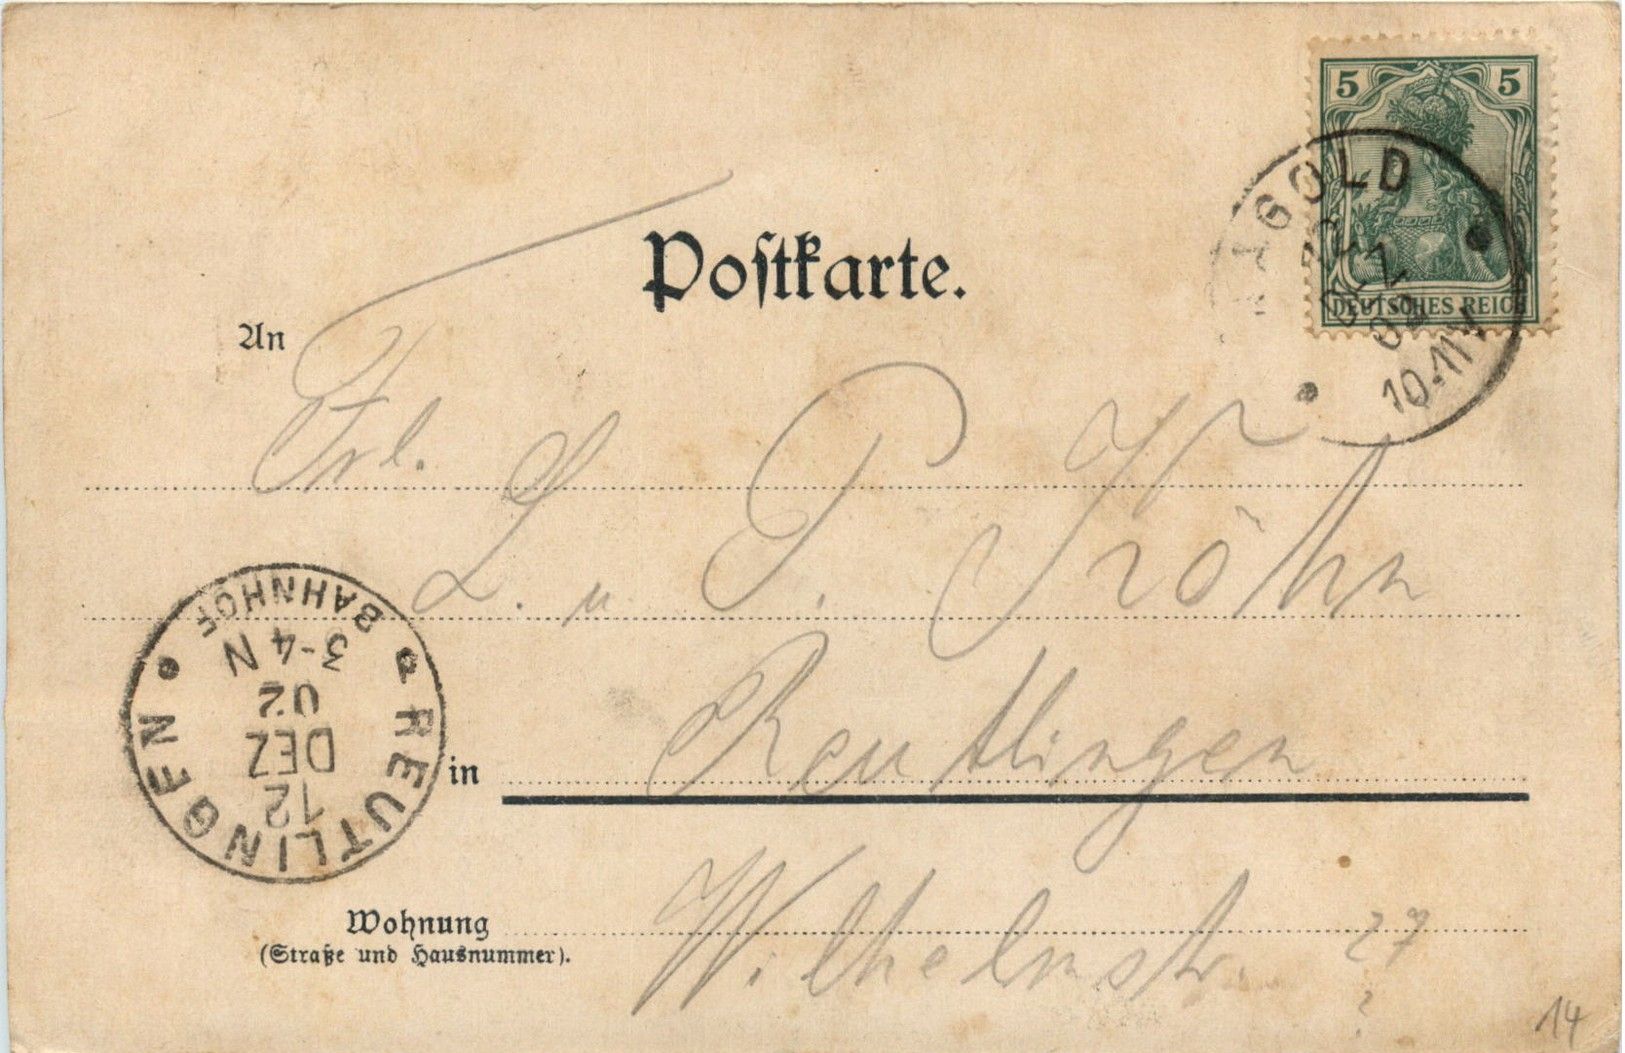 5 5
DEUTSCHES REICH
NAGOLD
12
DEZ
02
10-11V
Postkarte.
An
Frl.
L. u P. Köhn
in Reutlingen
REUTLINGEN
12
DEZ
02
3-4 N
BAHNHOF
Wohnung Wilhelmstr. 27
(Straße und Hausnummer). ?
14